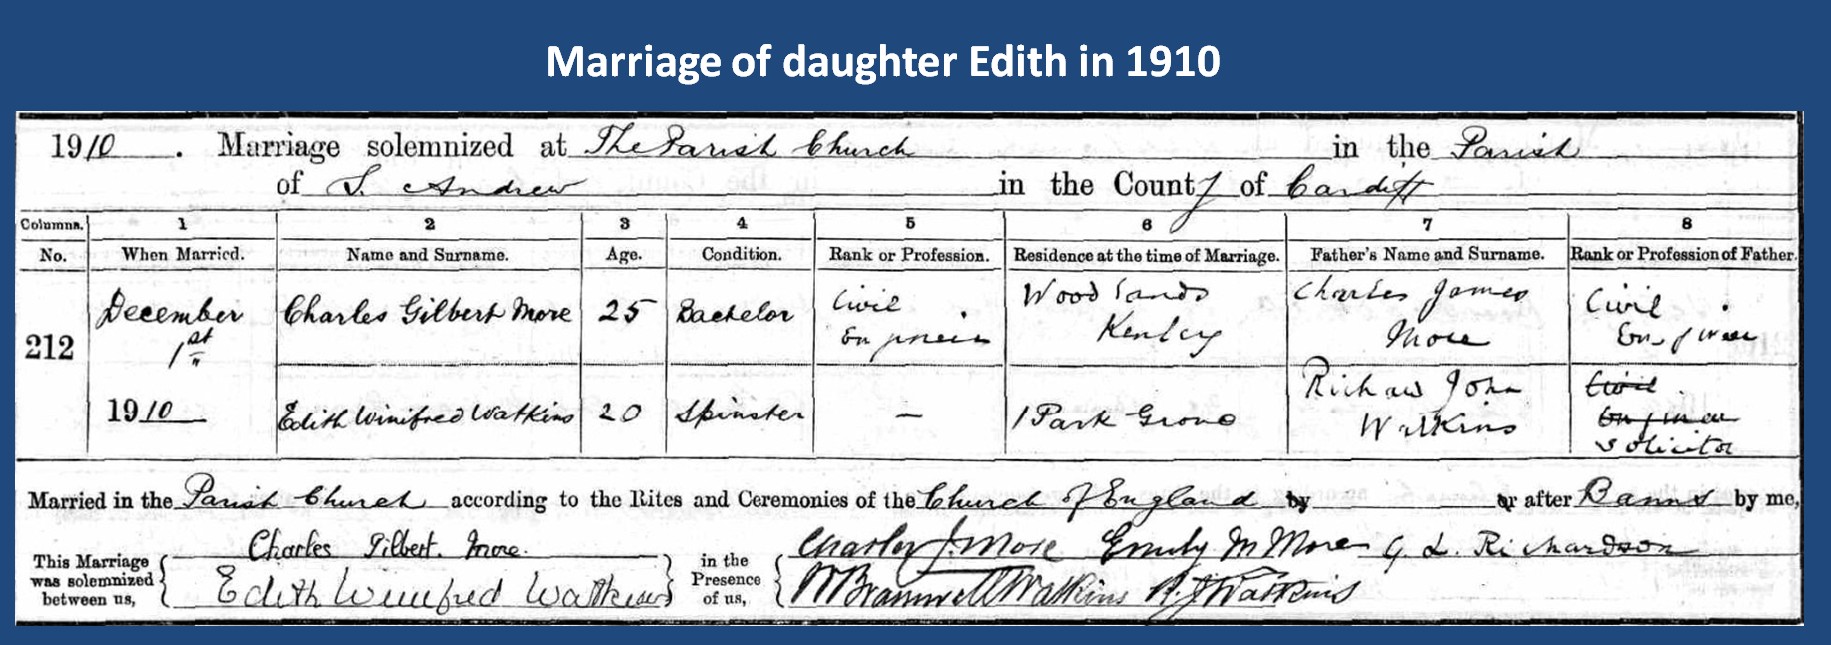 Marriage of daughter Edith in 1910
1910 . Marriage solemnized at The Parish Church in the Parish
of S. Andrew in the County of Cardiff
Columns. 1 2 3 4 5 6 7 8
No. When Married. Name and Surname. Age. Condition. Rank or Profession. Residence at the time of Marriage. Father's Name and Surname. Rank or Profession of Father.
212
December
1st
1910
Charles Gilbert More 25 Bachelor
Civil
Engineer
Woodlands
Kenley
Charles James
More
Civil
Engineer
Edith Winifred Watkins 20 Spinster — 1 Park Grove
Richard John
Watkins
Civil
Engineer
Solicitor
Married in the Parish Church according to the Rites and Ceremonies of the Church of England by or after Banns by me,
This Marriage
was solemnized
between us,
Charles Gilbert More.
Edith Winifred Watkins
in the
Presence
of us,
Charles J. More Emily M More G. L. Richardson
Bramwell Watkins R. J. Watkins